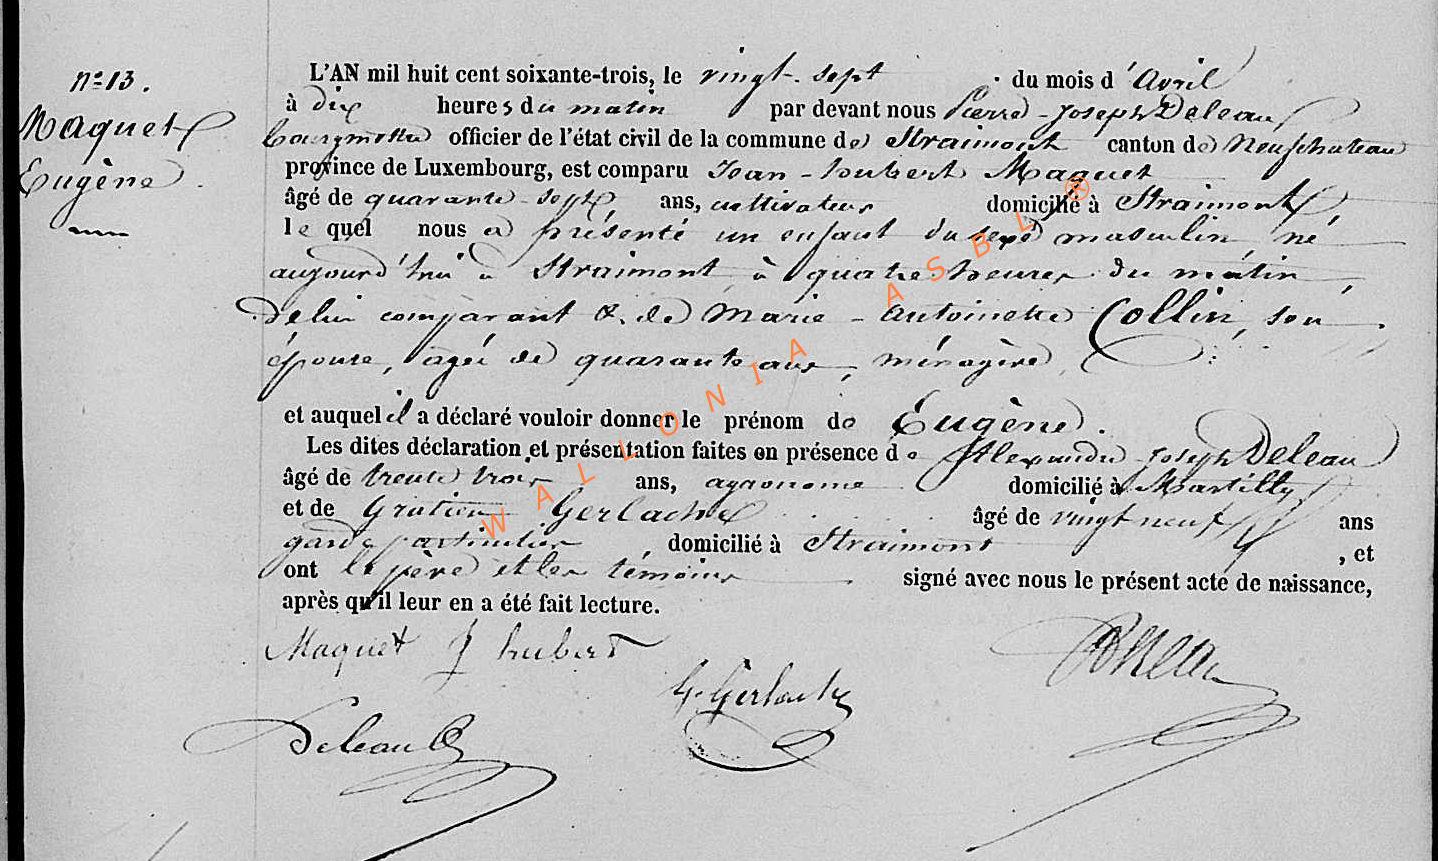 N° 13.
Maquet
Eugène.
L'AN mil huit cent soixante-trois, le vingt-sept du mois d'Avril
à dix heures du matin par devant nous Pierre-Joseph Deleau
bourgmestre officier de l'état civil de la commune de Straimont canton de Neufchateau
province de Luxembourg, est comparu Jean-hubert Maquet
âgé de quarante-sept ans, cultivateur domicilié à Straimont,
lequel nous a présenté un enfant du sexe masculin, né
aujourd'hui à Straimont, à quatre heures du matin,
de lui comparant & de Marie-Antoinette Collin, son
épouse, agée de quarante ans, ménagère,
et auquel il a déclaré vouloir donner le prénom de Eugène.
Les dites déclaration et présentation faites en présence de Alexandre-Joseph Deleau
âgé de trente trois ans, agronome domicilié à Martilly,
et de Gratien Gerlache âgé de vingt neuf ans
garde particulier, domicilié à Straimont, et
ont le père et les témoins signé avec nous le présent acte de naissance,
après qu'il leur en a été fait lecture.
Maquet J hubert
G. Gerlache
Deleau
WALLONIA ASBL ®